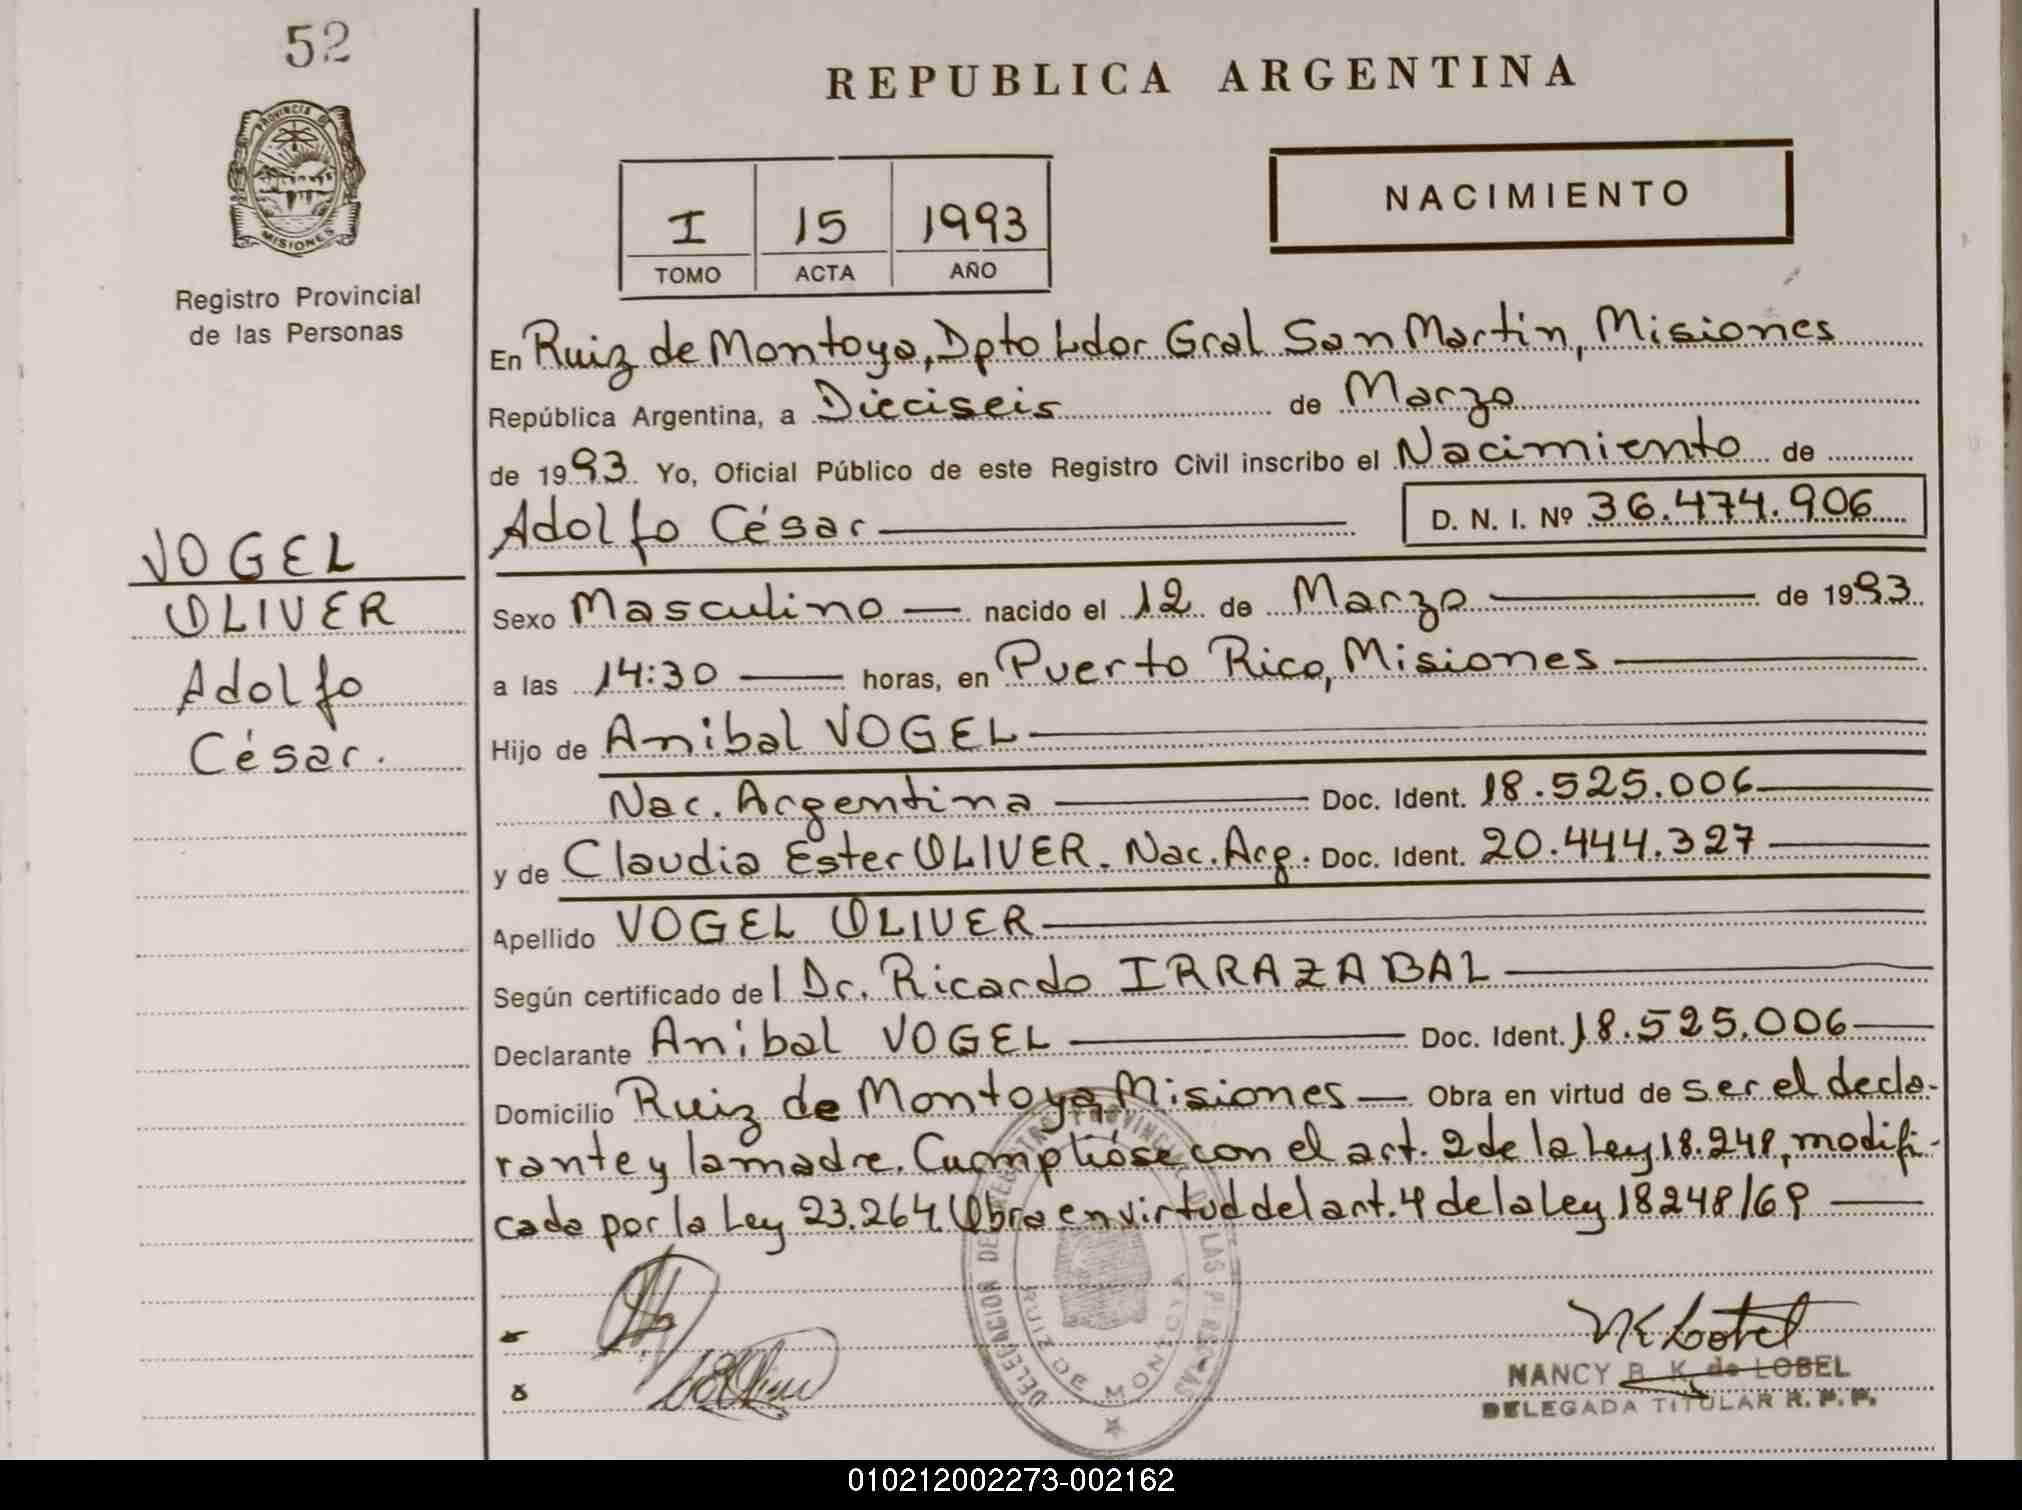 52
REPUBLICA ARGENTINA
PROVINCIA DE
MISIONES
Registro Provincial
de las Personas
I 15 1993
TOMO ACTA AÑO
NACIMIENTO
En Ruiz de Montoya, Dpto Ldor Gral San Martin, Misiones
República Argentina, a Dieciseis de Marzo
de 1993. Yo, Oficial Público de este Registro Civil inscribo el Nacimiento de
Adolfo César D. N. I. Nº 36.474.906
VOGEL
OLIVER
Adolfo
César.
Sexo Masculino — nacido el 12 de Marzo — de 1993.
a las 14:30 — horas, en Puerto Rico, Misiones —
Hijo de Anibal VOGEL —
Nac. Argentina — Doc. Ident. 18.525.006 —
y de Claudia Ester OLIVER. Nac. Arg. Doc. Ident. 20.444.327 —
Apellido VOGEL OLIVER —
Según certificado del Dr. Ricardo IRRAZABAL —
Declarante Anibal VOGEL — Doc. Ident. 18.525.006 —
Domicilio Ruiz de Montoya, Misiones — Obra en virtud de ser el decla-
rante y la madre. Cumplióse con el art. 2 de la Ley 18.248, modifi-
cada por la Ley 23.264. Obra en virtud del art. 4 de la ley 18248/69 —
DELEGACION DEL REGISTRO PROVINCIAL DE LAS PERSONAS
RUIZ DE MONTOYA
NANCY B. K. de LOBEL
DELEGADA TITULAR R. P. P.
010212002273-002162